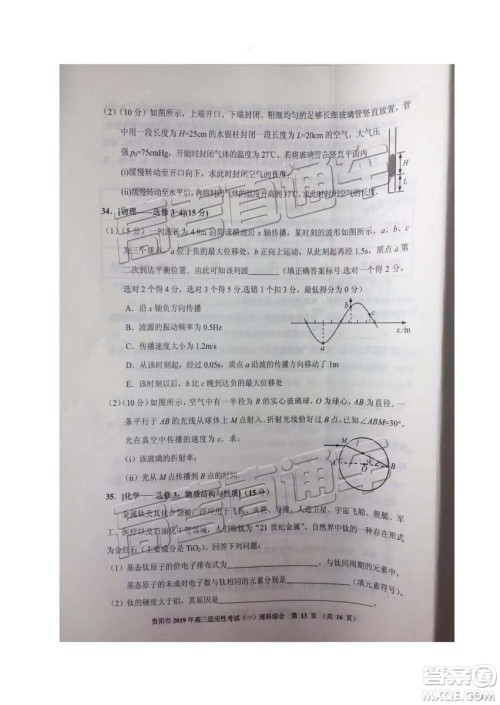 (2)(10分)如图所示，上端开口、下端封闭、粗细均匀的足够长细玻璃管竖直放置，管
中用一段长度为H=25cm的水银柱封闭一段长度为L=20cm的空气，大气压
强p₀=75cmHg，开始时封闭气体的温度为27℃，若将玻璃管在竖直平面内
(i)缓慢转动至开口向下，求封闭气体的长度；
(ii)缓慢转动至水平后，再将封闭气体温度升高到37℃，求封闭气体的长度。
H
L
34. [物理——选修3-4](15分)
(1)(5分)一列波长为4.8m的简谐横波沿x轴传播，某时刻的波形如图所示，a、b、c为
三个质点，a位于负的最大位移处，b正向上运动，从此时刻起再经过1.5s，质点a第
二次到达平衡位置。由此可知该列波（填正确答案标号。选对1个得
2分，选对2个得4分，选对3个得5分.选错1个扣3分，最低得分为0分）
A．沿x轴负方向传播
B．波源的振动频率为0.5Hz
C．传播速度大小为1.2m/s
D．从该时刻起，经过0.05s，质点a沿波的传播方向移动了1m
E．该时刻以后，b比c晚到达负的最大位移处
a
b
c
x/m
(2)(10分)如图所示，空气中有一半径为R的实心玻璃球，O为球心，AB为直径．一
条平行于AB的光线从球体上M点射入．折射光线恰好过B点，已知∠ABM=30°，
光在真空中传播的速度为c．求：
(i)该玻璃的折射率；
(ii)光从M点传播到B点的时间．
M
A
O
B
35. [化学——选修3：物质结构与性质](15分)
金属钛及其合金大量应用于航空航天、人造卫星、宇宙飞船、舰艇、汽车、
医疗以及石油化工等领域，被誉为“21世纪金属”，其在自然界中的一种存在形式
为金红石（主要成分为TiO₂），回答下列问题：
(1)基态钛原子的价电子排布式为，与钛同周期的元素中，
基态原子的未成对电子数与钛相同的元素分别为。
(2)钛的硬度大于铝，其原因是。
贵阳市2019年高三适应性考试（一）理科综合 第13页（共16页）
高考直通车
高考直通车
高考直通车